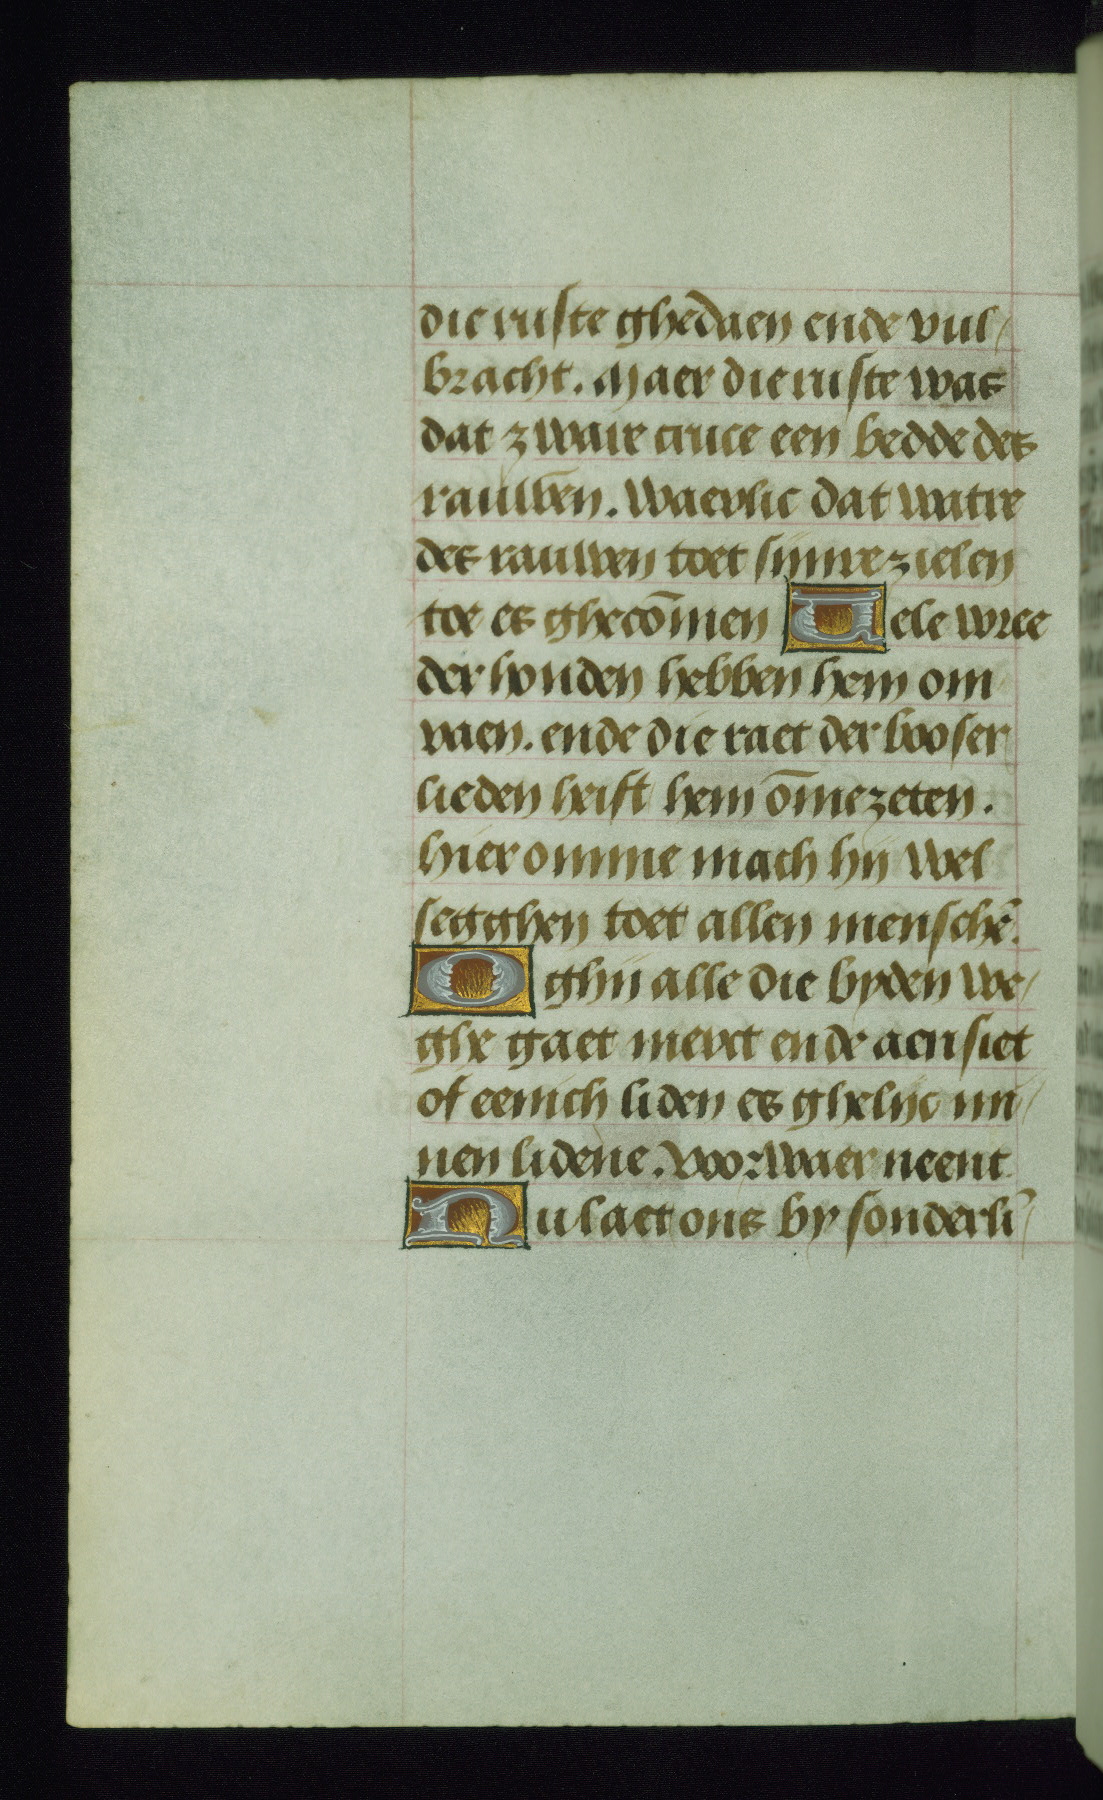 die ruste ghedaen ende vul/
bracht. Maer die ruste was
dat zwair cruce een bedde des
rauwē̄n. Waerlic dat watre
des rauwen toet sijnre zielen
toe es ghecōmen Vele wree
der honden hebben hem om
vaen. ende die raet der booser
lieden heift hem ōmezeten.
hieromme mach hij wel
segghen toet allen menschē.
O ghij alle die byden we/
ghe gaet merct ende aensiet
of eenich liden es ghelijc mi/
nen lidene. Voorwaer neent
Nu laet ons by sonderli/